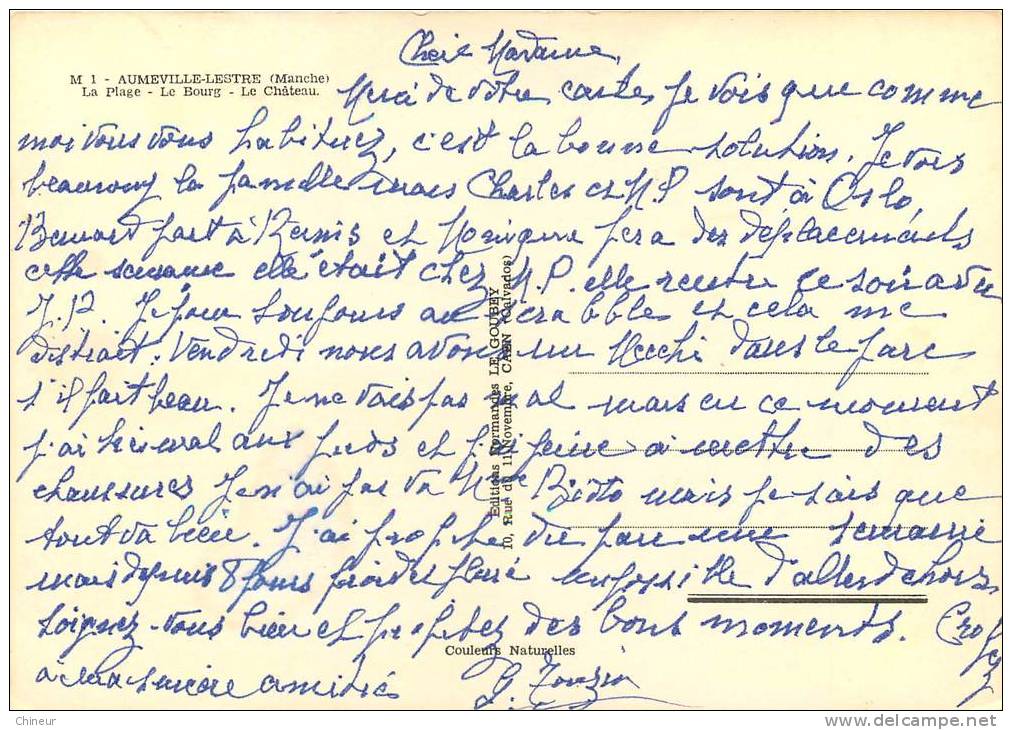 Chère Madame,
M 1 - AUMEVILLE-LESTRE (Manche)
La Plage - Le Bourg - Le Château.
Merci de votre carte, je vois que comme
moi vous vous habituez, c'est la bonne solution. Je vois
beaucoup la famille mais Charles et M.P sont à Oslo,
Bernard part à Reims et Monique fera des déplacements
cette semaine elle était chez M.P. elle rentre ce soir avec
J.P. Je joue toujours au scrabble et cela me
distrait. Vendredi nous avons un Mechi dans le parc
s'il fait beau. Je ne vais pas mal mais en ce moment
j'ai très mal aux pieds et j'ai peine à mettre des
chaussures Je n'ai pas vu Mme mais je sais que
tout va bien. J'ai profité du parc une semaine
mais depuis 8 jours froid et pluie impossible d'aller dehors
Soignez-vous bien et profitez des bons moments. Croyez
à ma sincère amitié
G.
Editions Normandes LE GOUBEY
10, Rue du 11 Novembre, CAEN (Calvados)
Couleurs Naturelles
Chineur
www.delcampe.net